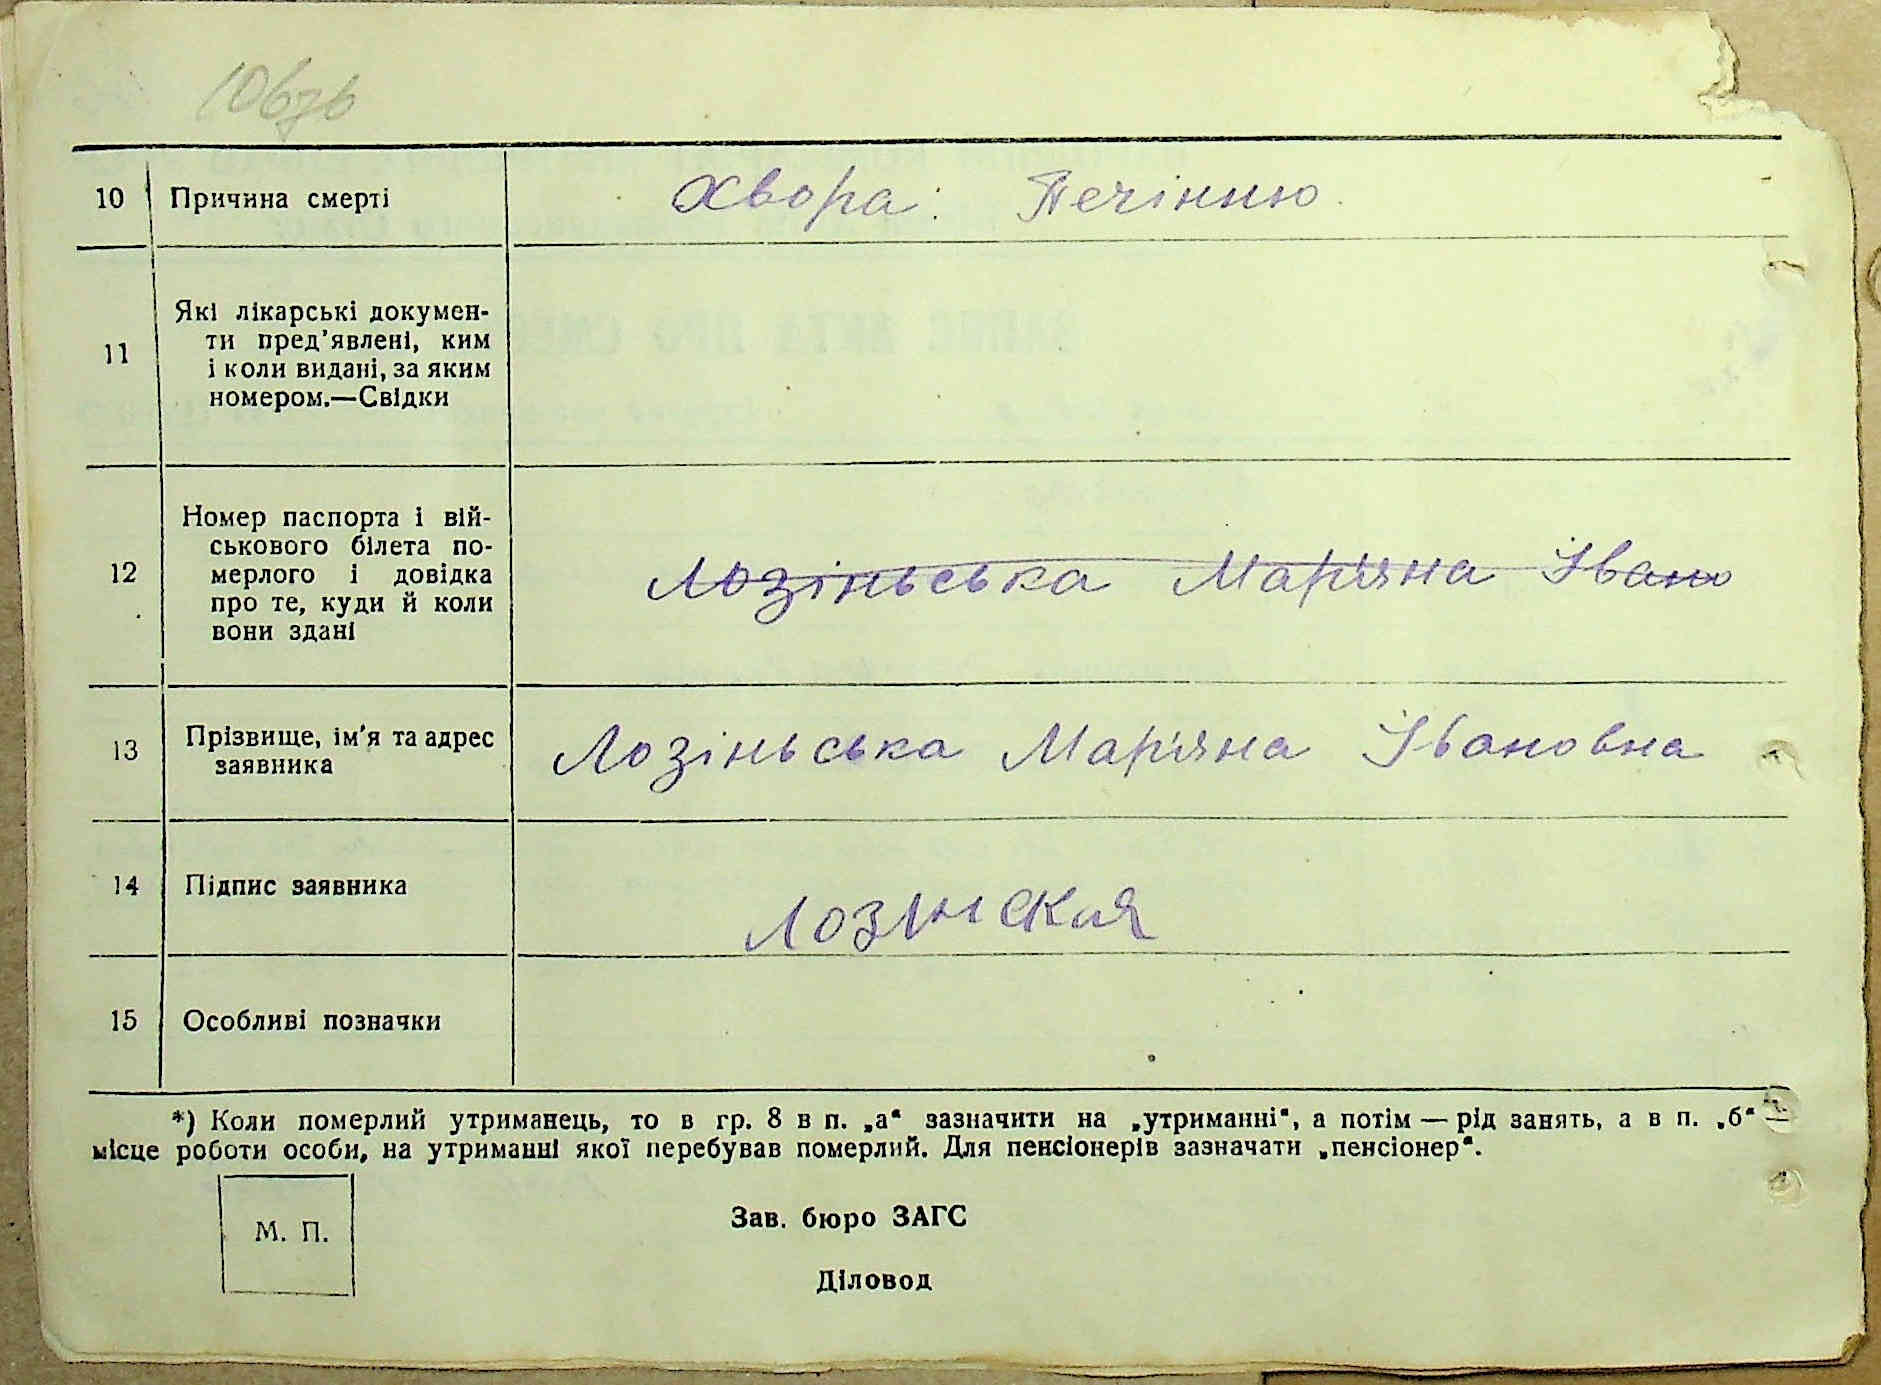 106зв
10 Причина смерті Хвора: Печінню.
11 Які лікарські докумен-
ти пред’явлені, ким
і коли видані, за яким
номером.—Свідки
12 Номер паспорта і вій-
ськового білета по-
мерлого і довідка
про те, куди й коли
вони здані
Лозіньська Мар'яна Івано
13 Прізвище, ім’я та адрес
заявника
Лозіньська Мар'яна Івановна
14 Підпис заявника Лозинская
15 Особливі позначки
*) Коли померлий утриманець, то в гр. 8 в п. „а“ зазначити на „утриманні“, а потім — рід занять, а в п. „б“ —
місце роботи особи, на утриманні якої перебував померлий. Для пенсіонерів зазначати „пенсіонер“.
М. П.
Зав. бюро ЗАГС
Діловод